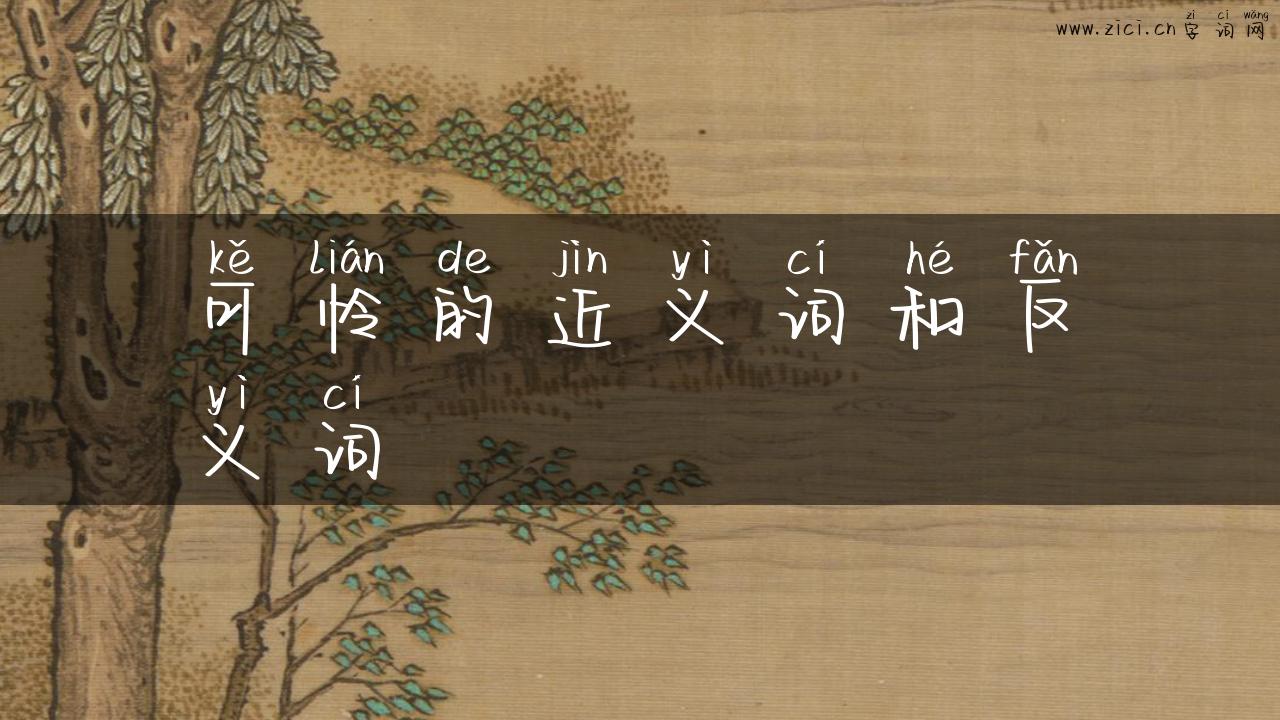 zì cí wǎng
www.zici.cn 字词网
kě lián de jìn yì cí hé fǎn
可怜的近义词和反
yì cí
义词